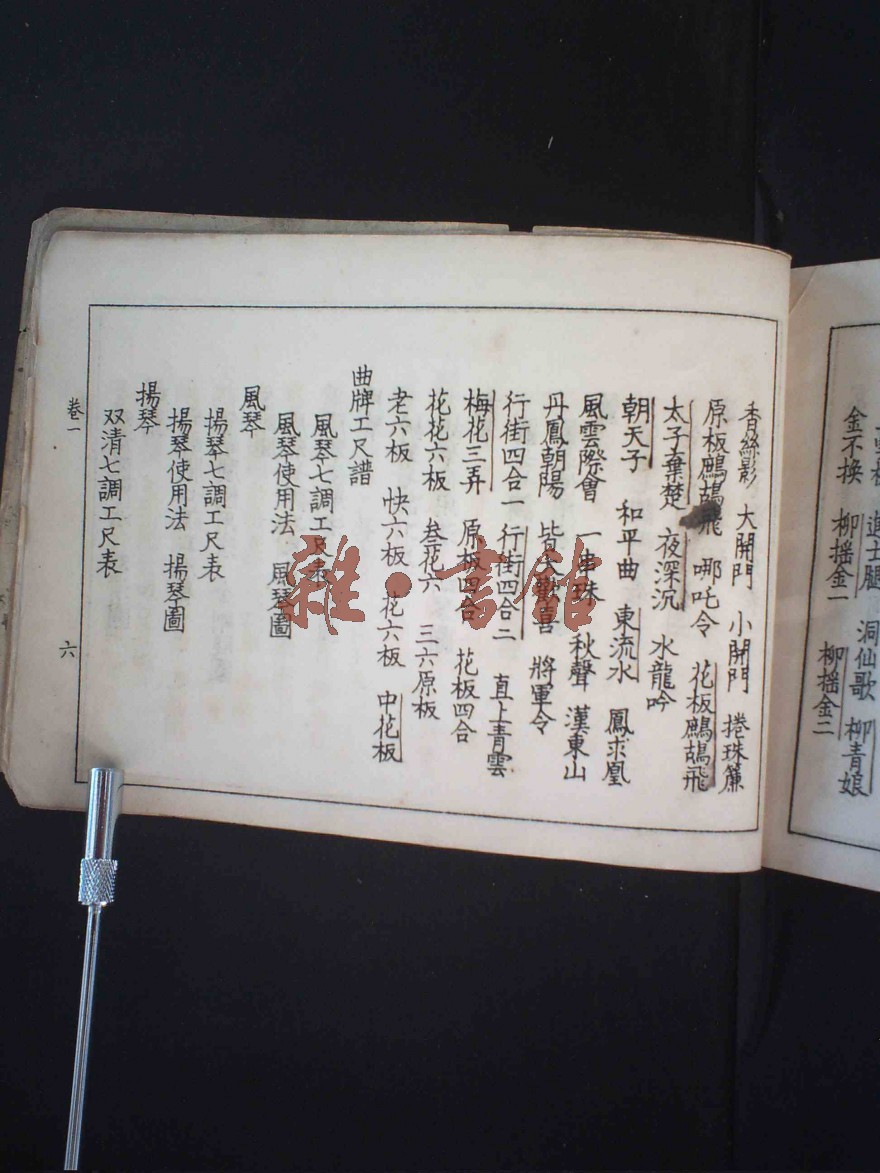 金不換　柳搖金一　柳搖金二
進士腿　洞仙歌　柳青娘
香絲影　大開門　小開門　捲珠簾
原板鷓鴣飛　哪吒令　花板鷓鴣飛
太子棄楚　夜深沉　水龍吟
朝天子　和平曲　東流水　鳳求凰
風雲際會　一串珠　秋聲　漢東山
丹鳳朝陽　皆大歡喜　將軍令
行街四合一　行街四合二　直上青雲
梅花三弄　原板四合　花板四合
花花六板　叁花六　三六原板
老六板　快六板　花六板　中花板
曲牌工尺譜
風琴七調工尺表
風琴使用法　風琴圖
風琴
揚琴七調工尺表
揚琴使用法　揚琴圖
揚琴
双清七調工尺表
卷一　六
雜·書館